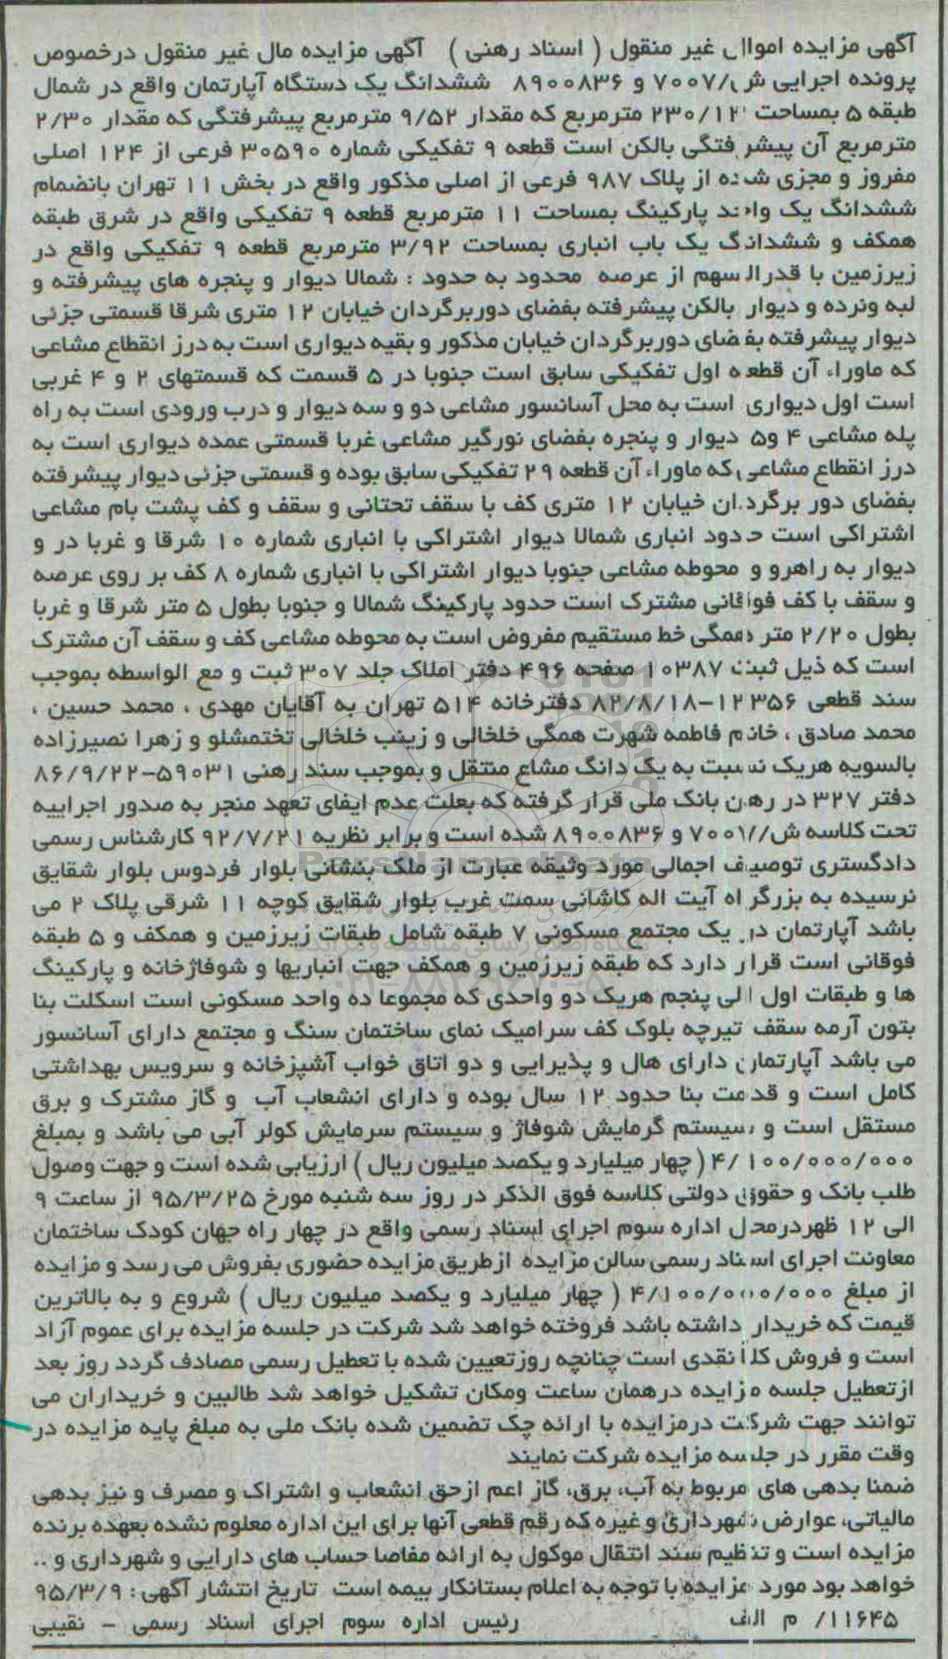 آگهی مزایده اموال غیر منقول ( اسناد رهنی ) آگهی مزایده مال غیر منقول درخصوص
پرونده اجرایی ش/۷۰۰۷ و ۸۹۰۰۸۳۶ ششدانگ یک دستگاه آپارتمان واقع در شمال
طبقه ۵ بمساحت ۲۳۰/۱۲ مترمربع که مقدار ۹/۵۲ مترمربع پیشرفتگی که مقدار ۲/۳۰
مترمربع آن پیشرفتگی بالکن است قطعه ۹ تفکیکی شماره ۳۰۵۹۰ فرعی از ۱۲۴ اصلی
مفروز و مجزی شده از پلاک ۹۸۷ فرعی از اصلی مذکور واقع در بخش ۱۱ تهران بانضمام
ششدانگ یک واحد پارکینگ بمساحت ۱۱ مترمربع قطعه ۹ تفکیکی واقع در شرق طبقه
همکف و ششدانگ یک باب انباری بمساحت ۳/۹۲ مترمربع قطعه ۹ تفکیکی واقع در
زیرزمین با قدرالسهم از عرصه محدود به حدود : شمالا دیوار و پنجره های پیشرفته و
لبه ونرده و دیوار بالکن پیشرفته بفضای دوربرگردان خیابان ۱۲ متری شرقا قسمتی جزئی
دیوار پیشرفته بفضای دوربرگردان خیابان مذکور و بقیه دیواری است به درز انقطاع مشاعی
که ماوراء آن قطعه اول تفکیکی سابق است جنوبا در ۵ قسمت که قسمتهای ۲ و ۴ غربی
است اول دیواری است به محل آسانسور مشاعی دو و سه دیوار و درب ورودی است به راه
پله مشاعی ۴ و۵ دیوار و پنجره بفضای نورگیر مشاعی غربا قسمتی عمده دیواری است به
درز انقطاع مشاعی که ماوراء آن قطعه ۲۹ تفکیکی سابق بوده و قسمتی جزئی دیوار پیشرفته
بفضای دور برگردان خیابان ۱۲ متری کف با سقف تحتانی و سقف و کف پشت بام مشاعی
اشتراکی است حدود انباری شمالا دیوار اشتراکی با انباری شماره ۱۰ شرقا و غربا در و
دیوار به راهرو و محوطه مشاعی جنوبا دیوار اشتراکی با انباری شماره ۸ کف بر روی عرصه
و سقف با کف فوقانی مشترک است حدود پارکینگ شمالا و جنوبا بطول ۵ متر شرقا و غربا
بطول ۲/۲۰ متر همگی خط مستقیم مفروض است به محوطه مشاعی کف و سقف آن مشترک
است که ذیل ثبت ۱۰۳۸۷ صفحه ۴۹۶ دفتر املاک جلد ۳۰۷ ثبت و مع الواسطه بموجب
سند قطعی ۱۲۳۵۶-۸۲/۸/۱۸ دفترخانه ۵۱۴ تهران به آقایان مهدی ، محمد حسین ،
محمد صادق ، خانم فاطمه شهرت همگی خلخالی و زینب خلخالی تختمشلو و زهرا نصیرزاده
بالسویه هریک نسبت به یک دانگ مشاع منتقل و بموجب سند رهنی ۵۹۰۳۱-۸۶/۹/۲۲
دفتر ۳۲۷ در رهن بانک ملی قرار گرفته که بعلت عدم ایفای تعهد منجر به صدور اجراییه
تحت کلاسه ش//۷۰۰۷ و ۸۹۰۰۸۳۶ شده است و برابر نظریه ۹۲/۷/۲۱ کارشناس رسمی
دادگستری توصیف اجمالی مورد وثیقه عبارت از ملک بنشانی بلوار فردوس بلوار شقایق
نرسیده به بزرگراه آیت اله کاشانی سمت غرب بلوار شقایق کوچه ۱۱ شرقی پلاک ۲ می
باشد آپارتمان در یک مجتمع مسکونی ۷ طبقه شامل طبقات زیرزمین و همکف و ۵ طبقه
فوقانی است قرار دارد که طبقه زیرزمین و همکف جهت انباریها و شوفاژخانه و پارکینگ
ها و طبقات اول الی پنجم هریک دو واحدی که مجموعا ده واحد مسکونی است اسکلت بنا
بتون آرمه سقف تیرچه بلوک کف سرامیک نمای ساختمان سنگ و مجتمع دارای آسانسور
می باشد آپارتمان دارای هال و پذیرایی و دو اتاق خواب آشپزخانه و سرویس بهداشتی
کامل است و قدمت بنا حدود ۱۲ سال بوده و دارای انشعاب آب و گاز مشترک و برق
مستقل است و سیستم گرمایش شوفاژ و سیستم سرمایش کولر آبی می باشد و بمبلغ
۴/۱۰۰/۰۰۰/۰۰۰ ( چهار میلیارد و یکصد میلیون ریال ) ارزیابی شده است و جهت وصول
طلب بانک و حقوق دولتی کلاسه فوق الذکر در روز سه شنبه مورخ ۹۵/۳/۲۵ از ساعت ۹
الی ۱۲ ظهردرمحل اداره سوم اجرای اسناد رسمی واقع در چهار راه جهان کودک ساختمان
معاونت اجرای اسناد رسمی سالن مزایده ازطریق مزایده حضوری بفروش می رسد و مزایده
از مبلغ ۴/۱۰۰/۰۰۰/۰۰۰ ( چهار میلیارد و یکصد میلیون ریال ) شروع و به بالاترین
قیمت که خریدار داشته باشد فروخته خواهد شد شرکت در جلسه مزایده برای عموم آزاد
است و فروش کلاً نقدی است چنانچه روزتعیین شده با تعطیل رسمی مصادف گردد روز بعد
ازتعطیل جلسه مزایده درهمان ساعت ومکان تشکیل خواهد شد طالبین و خریداران می
توانند جهت شرکت درمزایده با ارائه چک تضمین شده بانک ملی به مبلغ پایه مزایده در
وقت مقرر در جلسه مزایده شرکت نمایند
ضمنا بدهی های مربوط به آب، برق، گاز اعم ازحق انشعاب و اشتراک و مصرف و نیز بدهی
مالیاتی، عوارض شهرداری و غیره که رقم قطعی آنها برای این اداره معلوم نشده بعهده برنده
مزایده است و تنظیم سند انتقال موکول به ارائه مفاصا حساب های دارایی و شهرداری و ..
خواهد بود مورد مزایده با توجه به اعلام بستانکار بیمه است تاریخ انتشار آگهی : ۹۵/۳/۹
۱۱۶۴۵/ م الف رئیس اداره سوم اجرای اسناد رسمی - نقیبی